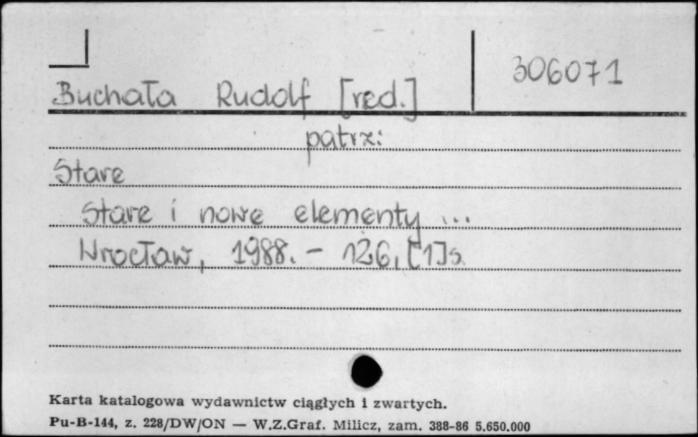 306071
Buchała Rudolf [red.]
patrz:
Stare
Stare i nowe elementy ...
Wrocław, 1988. - 126, [1] s.
Karta katalogowa wydawnictw ciągłych i zwartych.
Pu-B-144, z. 228/DW/ON — W.Z.Graf. Milicz, zam. 388-86 5.650.000